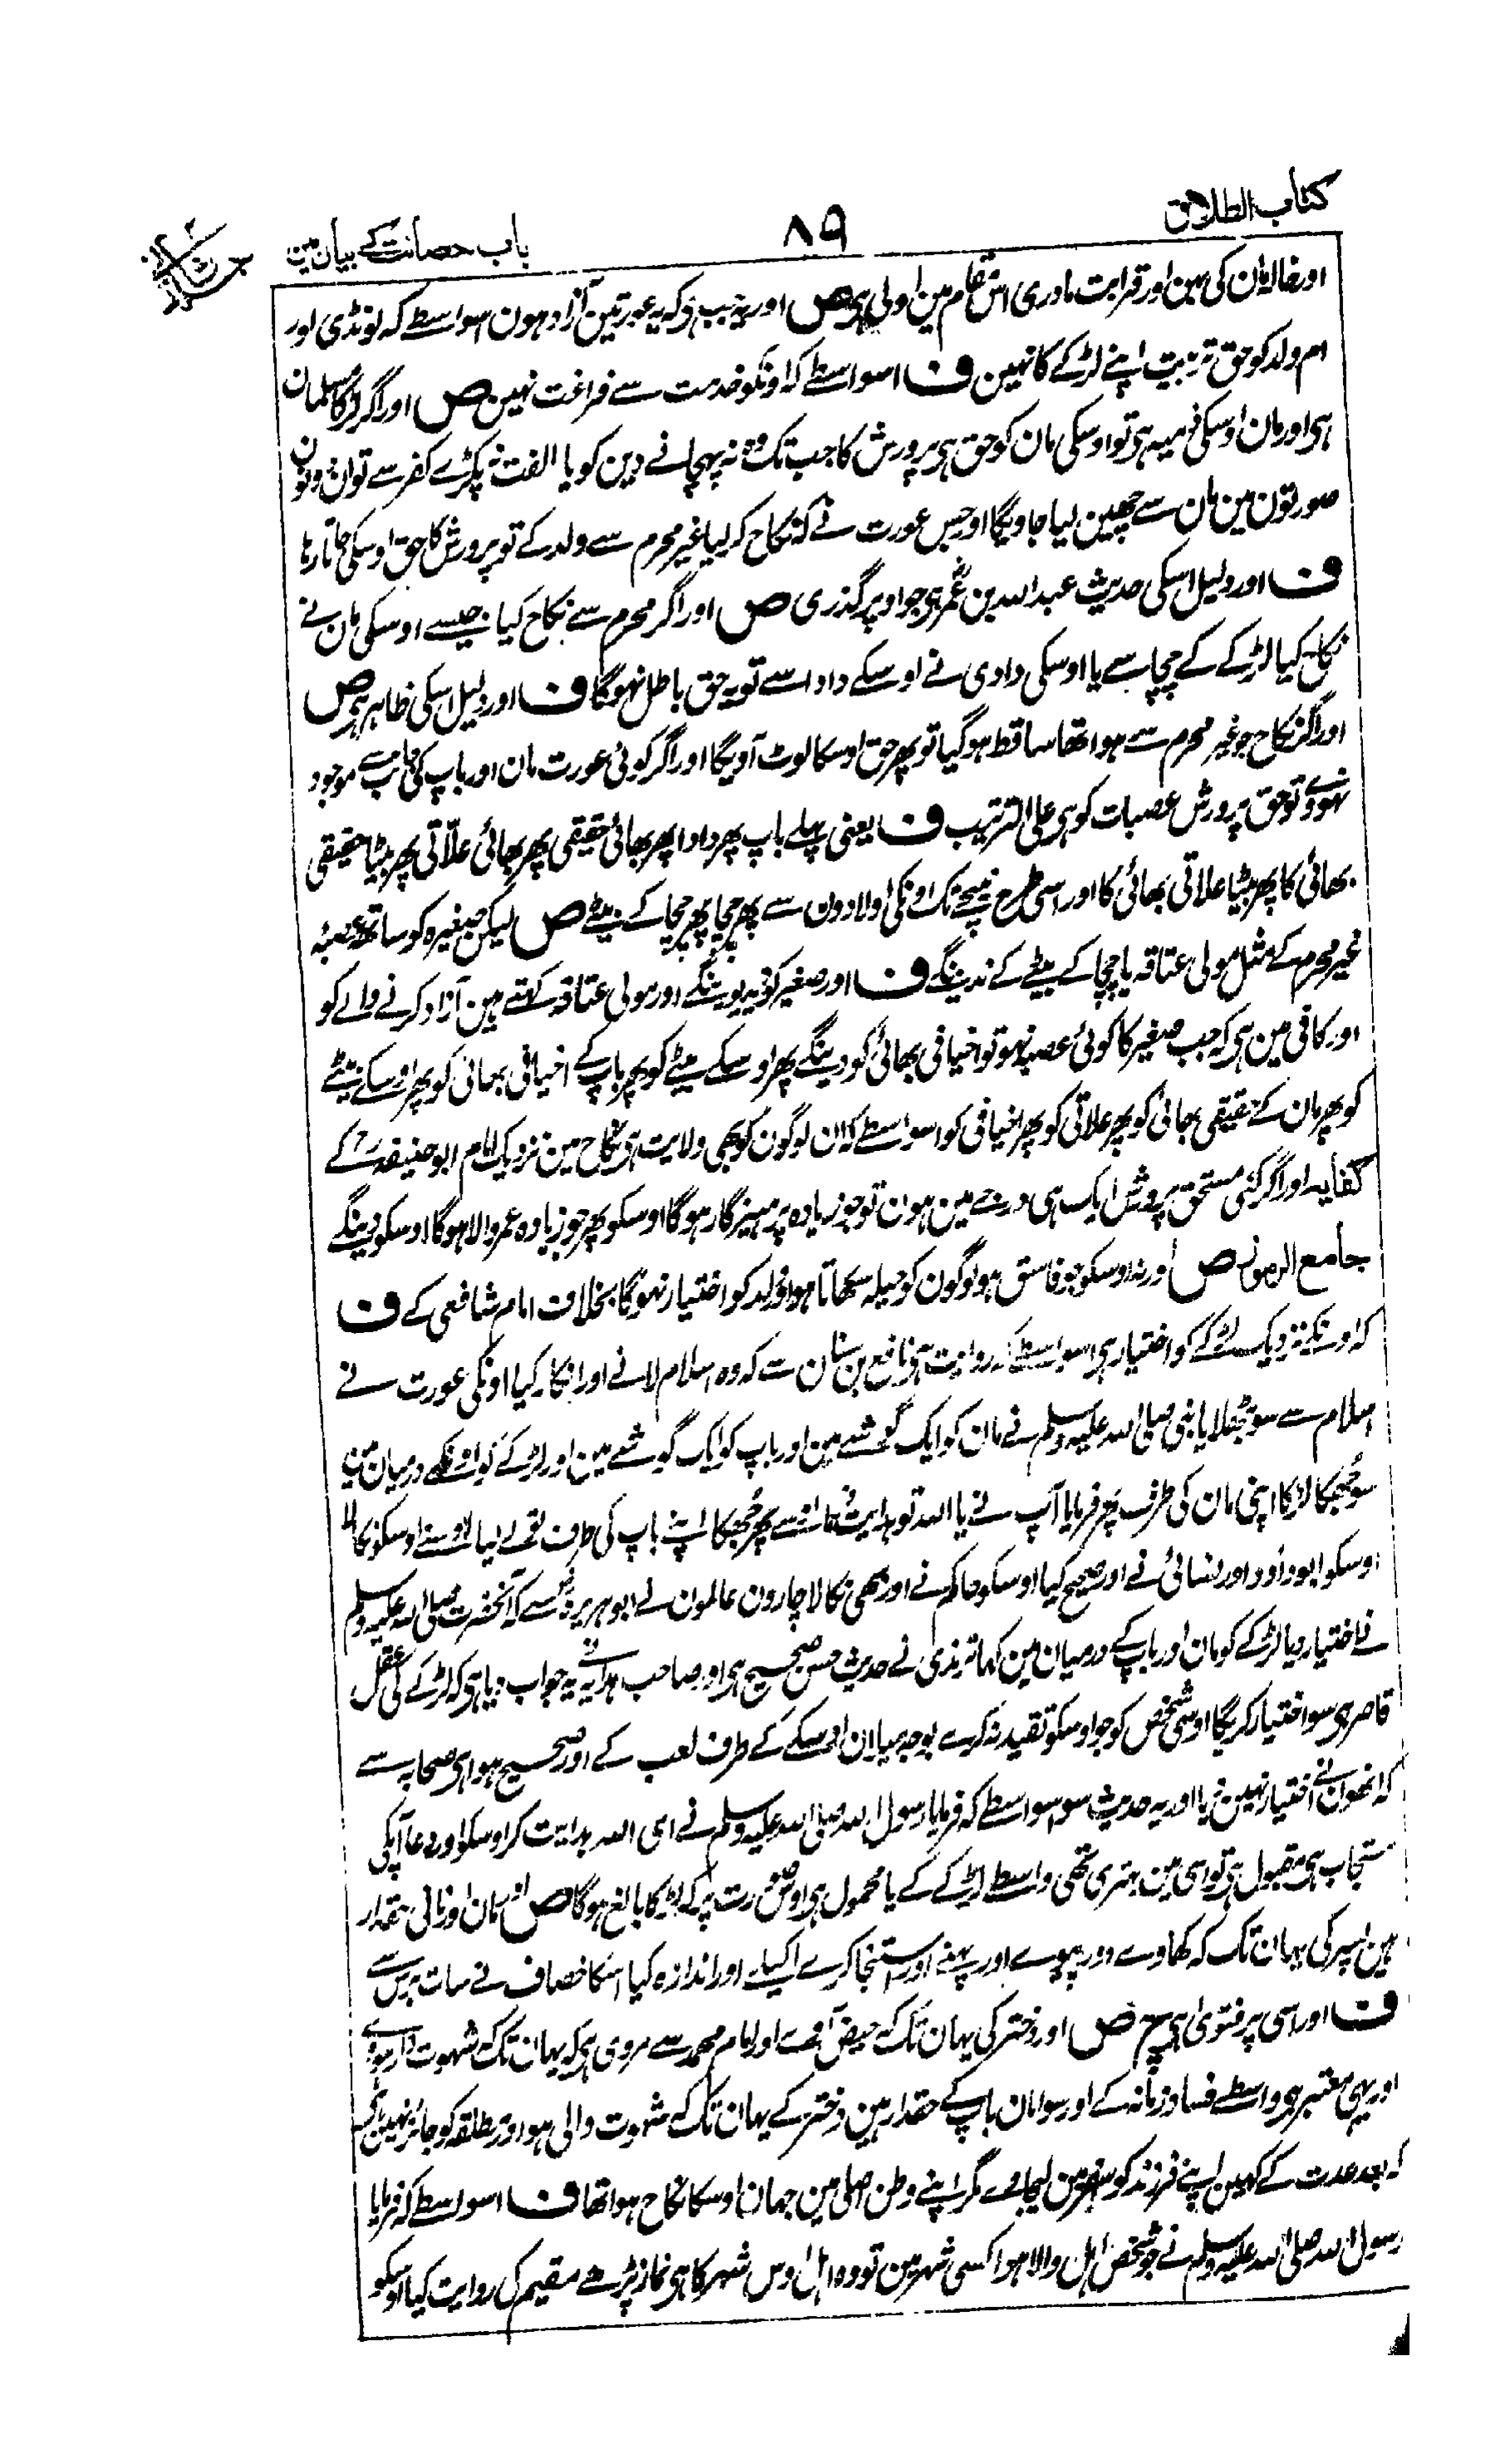 کتاب الطلاق
۸۹
باب حصانت کے بیان مین
اور خالہ مان کی بہن اور قرابت مادری اس مقام مین اولی ہی ص اور یہ جب ہی کہ یہ عورتین آزاد ہون اسواسطے کہ لونڈی اور
ام ولد کو حق تربیت اپنے لڑکے کا نہین ف اسواسطے کہ اونکو خدمت سے فراغت نہین ص اور اگر لڑکا مسلمان
ہی اور مان اوسکی ذمیہ ہی تو اوسکی مان کو حق ہی پرورش کا جب تک وہ نہ پہچانے دین کو یا الفت نہ پکڑے کفر سے تو ان دونون
صورتون مین مان سے چھین لیا جاویگا اور جس عورت نے کہ نکاح کر لیا غیر محرم سے ولد کے تو پرورش کا حق اوسکی جاتا رہا
ف اور دلیل اسکی حدیث عبد اللہ بن عمر ہی جو اوپر گذری ص اور اگر محرم سے نکاح کیا جیسے اوسکی مان نے
نکاح کیا لڑکے کے چچا سے یا اوسکی دادی نے اوسکے دادا سے تو یہ حق باطل نہوگا ف اور دلیل اسکی ظاہر ہی ص
اور اگر نکاح جو غیر محرم سے ہوا تھا ساقط ہو گیا تو پھر حق اوسکا لوٹ آویگا اور اگر کوئی عورت مان اور باپ کی جانب سے موجود
نہووے تو حق پرورش عصبات کو ہی علی الترتیب ف یعنی پہلے باپ پھر دادا پھر بھائی حقیقی پھر بھائی علاّتی پھر بیٹا حقیقی
بھائی کا پھر بیٹا علاتی بھائی کا اور اسی طرح نیچے تک اونکی اولادون سے پھر چچا پھر چچا کے بیٹے ص لیکن صغیرہ کو ساتھ عصبہ
غیر محرم کے مثل مولی عتاقہ یا چچا کے بیٹے کے ندینگے ف اور صغیر کو دیدیوینگے اور مولی عتاقہ کہتے ہین آزاد کرنے والے کو
اور کافی مین ہی کہ جب صغیر کا کوئی عصبہ نہو تو اخیافی بھائی کو دینگے پھر اوسکے بیٹے کو پھر باپ کے اخیافی بھائی کو پھر اوسکے بیٹے
کو پھر مان کے حقیقی بھائی کو پھر علاتی کو پھر اخیافی کو اسواسطے کہ ان لوگون کو بھی ولایت ہی نکاح مین نزدیک امام ابو حنیفہ رح کے
کفایہ اور اگر کئی مستحق پرورش ایک ہی درجے مین ہون تو جو زیادہ پرہیزگار ہوگا اوسکو پھر جو زیادہ عمر والا ہوگا اوسکو دینگے
جامع الرموز ص اور نہ اوسکو جو فاسق ہو لوگون کو حیلہ سکھاتا ہو اور ولد کو اختیار نہوگا بخلاف امام شافعی کے ف
کہ اونکے نزدیک لڑکے کو اختیار ہی اسواسطے کہ روایت ہی رافع بن سنان سے کہ وہ اسلام لائے اور انکار کیا اونکی عورت نے
اسلام سے سو بٹھلایا نبی صلی اللہ علیہ وسلم نے مان کو ایک گوشے مین اور باپ کو ایک گوشے مین اور لڑکے کو اونکے درمیان مین
سو جھکا لڑکا اپنی مان کی طرف پھر فرمایا آپ نے یا اللہ تو ہدایت کر اسے پھر جھکا اپنے باپ کی طرف تو لے لیا اوسنے اوسکو نکالا
اوسکو ابو داؤد اور نسائی نے اور صحیح کیا اوسکو حاکم نے اور بھی نکالا چارون عالمون نے ابو ہریرہ سے کہ آنحضرت صلی اللہ علیہ وسلم
نے اختیار دیا لڑکے کو مان اور باپ کے درمیان مین کہا ترمذی نے حدیث حسن صحیح ہی اور صاحب ہدایہ نے یہ جواب دیا ہی کہ لڑکے کی عقل
قاصر ہی سو اختیار کریگا اوسی شخص کو جو اوسکو تقید نہ کرے بوجہ میلان اوسکے کے طرف لعب کے اور صحیح ہوا ہی صحابہ سے
کہ انھون نے اختیار نہین دیا اور یہ حدیث سو اسواسطے کہ فرمایا رسول اللہ صلی اللہ علیہ وسلم نے ای اللہ ہدایت کر اوسکو اور دعا آپکی
مستجاب ہی مقبول ہی تو اسی مین بہتری تھی واسطے لڑکے کے یا محمول ہی اوس صورت پر کہ لڑکا بالغ ہوگا ص اور مان اور نانی حقدار
ہین پسر کی یہان تک کہ کھاوے اور پیوے اور پہنے اور استنجا کرے اکیلے اور اندازہ کیا اسکا خصاف نے سات برس سے
ف اور اسی پر فتویٰ ہی ص اور دختر کی یہان تک کہ حیض آوے اور امام محمد سے مروی ہی کہ یہان تک کہ شہوت دار ہووے
اور یہی معتبر ہی واسطے فساد زمانہ کے اور سوا مان باپ کے حقدار ہین دختر کے یہان تک کہ شہوت والی ہو اور مطلقہ کو جائز نہین
کہ بعد عدت کے کہین اپنے فرزند کو سفر مین لیجاوے مگر اپنے وطن اصلی مین جہان اوسکا نکاح ہوا تھا ف اسواسطے کہ فرمایا
رسول اللہ صلی اللہ علیہ وسلم نے جو شخص اہل والا ہوا کسی شہر مین تو وہ اہل اوس شہر کا ہی نماز پڑھے مقیم کی روایت کیا اوسکو